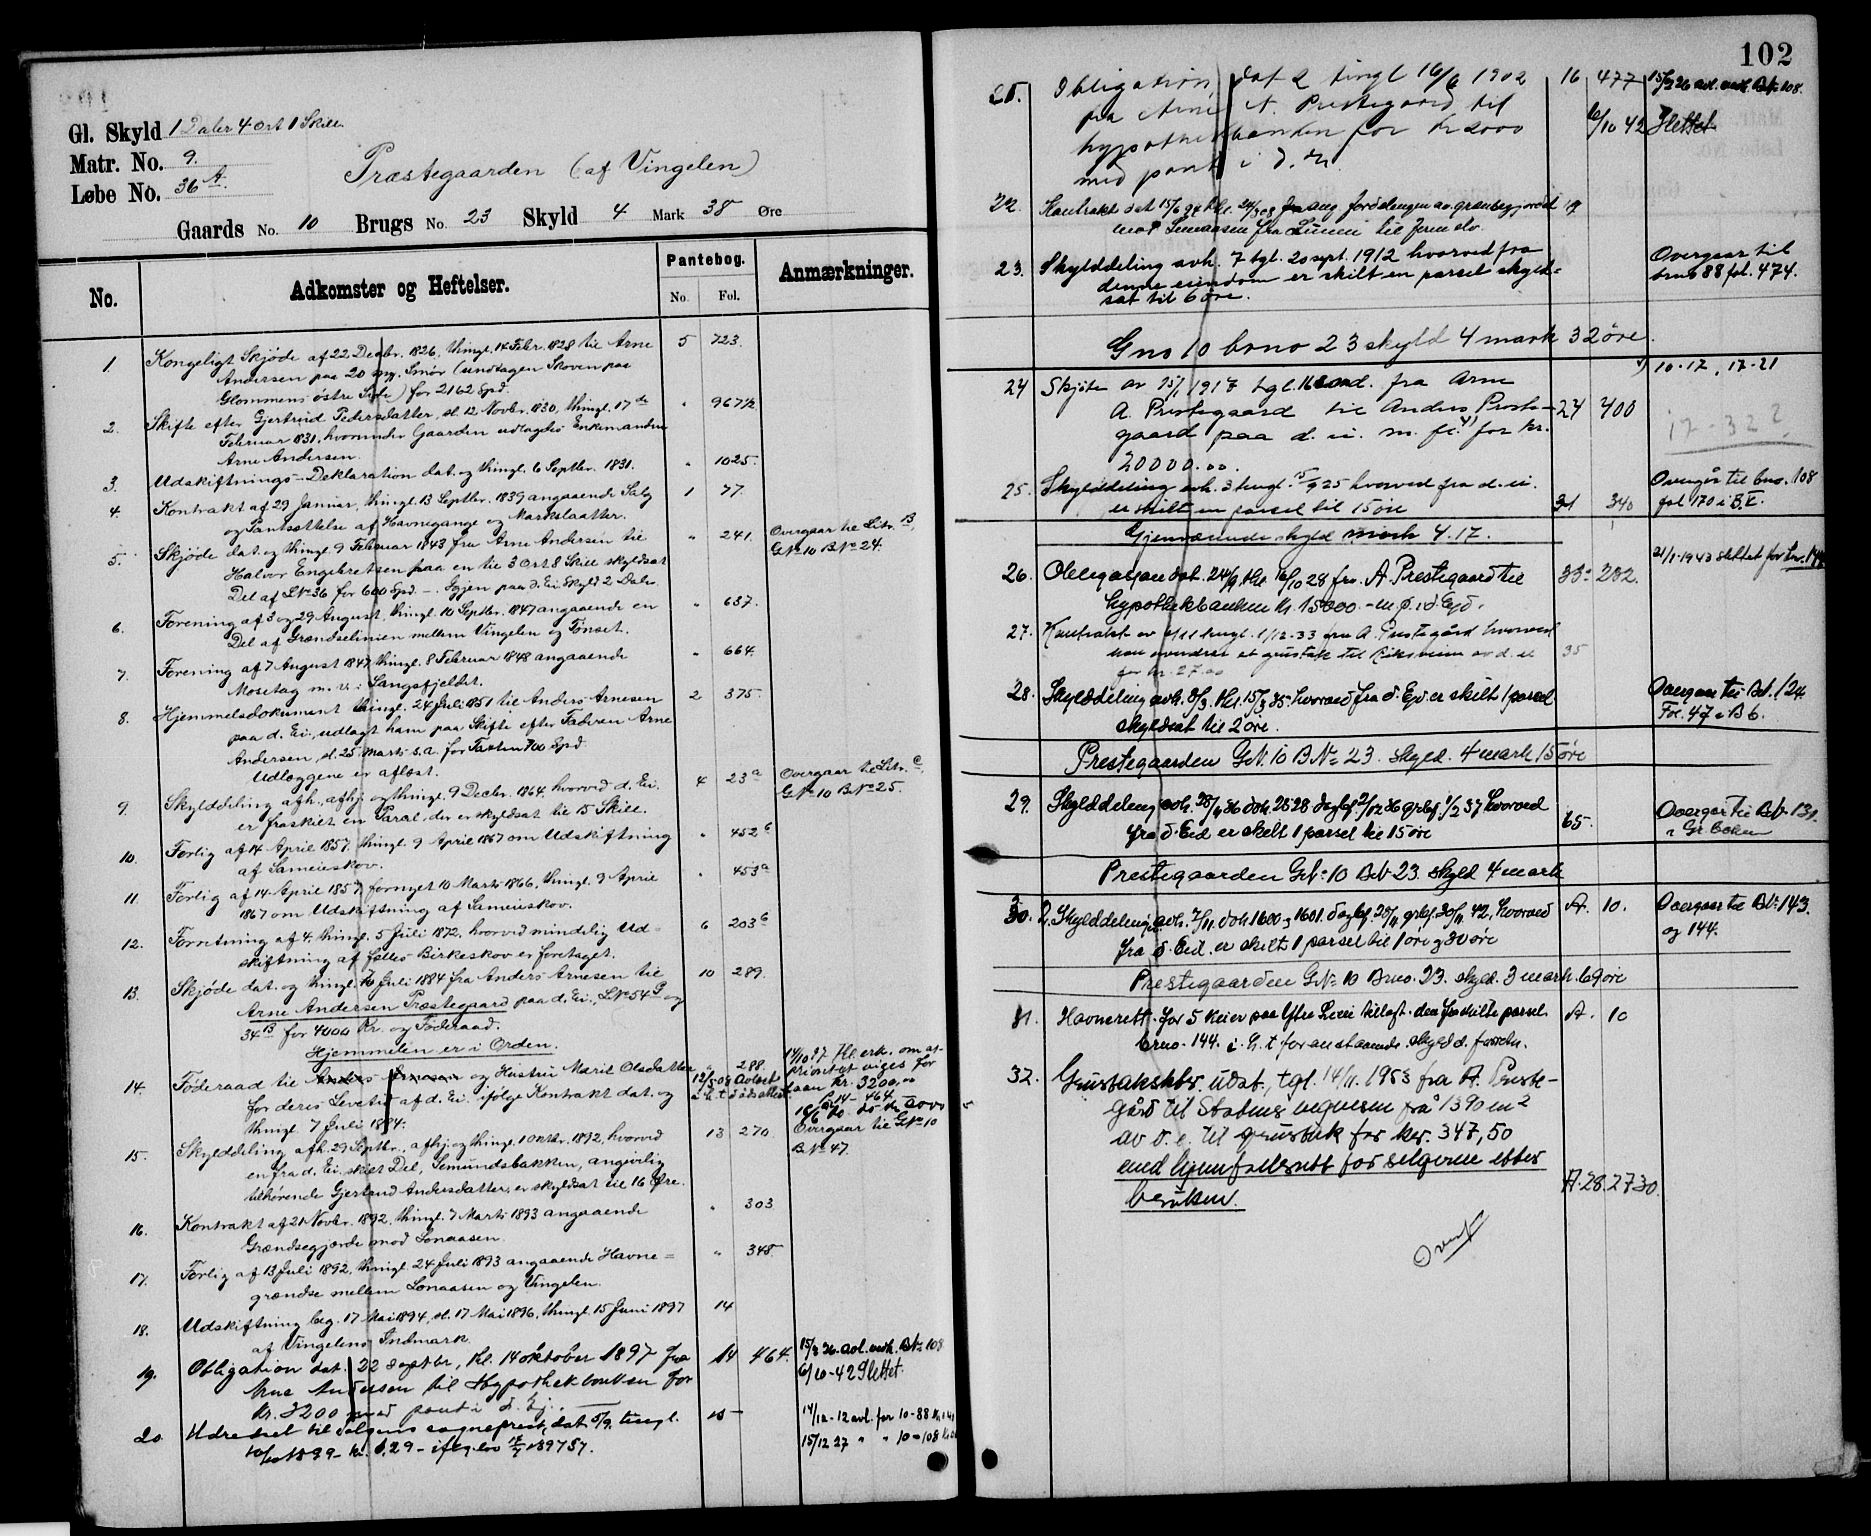 102
Gl. Skyld 1 Daler 4 Ort 1 Skill.
Matr. No. 9.
Løbe No. 36 A.
Præstegaarden (af Vingelen)
Gaards No. 10 Brugs No. 23 Skyld 4 Mark 38 Øre
No. Adkomster og Heftelser. Pantebog. No. Fol. Anmærkninger.
1. Kongeligt Skjøde af 22 Decbr. 1826, thingl. 14 Febr. 1828 til Arne 5 723.
Andersen paa 20 mg. Smør (undtagen Skoven paa
Glommens østre Side) for 2162 Spd.
2. Skifte efter Gjertrud Pedersdatter, sl. 12 Novbr. 1830, thingl. 17de " 967 1/2
Februar 1831, hvorunder Gaarden udlagdes Enkemanden
Arne Andersen.
3. Udskiftnings-Deklaration dat. og thingl. 6 Septbr. 1831. " 1025.
4. Kontrakt af 29 Januar, thingl. 13 Septbr. 1839 angaaende Salg 1 77.
og Pantsættelse af Havnegange og Markslaatter.
5. Skjøde dat. og thingl. 9 Februar 1843 fra Arne Andersen til " 241. Overgaar til Litr. B,
Halvor Engebretsen paa en til 3 Ort 8 Skill. skyldsat G.No 10 B.No 24.
Del af L.No 36 for 600 Spd. –. Igjen paa d. Ei. Skyld 2 Daler
6. Forening af 3 og 29 August, thingl. 10 Septbr. 1847 angaaende en " 637.
Del af Grændselinien mellem Vingelen og Tønset.
7. Forening af 7 August 1847, thingl. 8 Februar 1848 angaaende " 664.
Mosetag m. v. i Langsfjeldet.
8. Hjemmelsdokument thingl. 24 Juli 1851 til Anders Arnesen 2 375.
paa d. Ei., udlagt ham paa Skifte efter Faderen Arne
Andersen, sl. 25 Marts s.a. for Taxten 700 Spd.
Udlæggene er aflæst.
9. Skylddeling afh., afhj. og thingl. 9 Decbr. 1864, hvorved d. Ei. 4 23a Overgaar til Litr. C,
er fraskilt en Parcel, der er skyldsat til 15 Skill. G.No 10 B.No 25.
10. Forlig af 14 April 1857, thingl. 9 April 1867 om Udskiftning " 452b
af Sameieskov.
11. Forlig af 14 April 1857, fornyet 10 Marts 1866, thingl. 9 April " 453a
1867 om Udskiftning af Sameieskov.
12. Forretning af 4, thingl. 5 Juli 1872, hvorved mindelig Ud- 6 203b
skiftning af fælles Birkeskov er foretaget.
13. Skjøde dat. og thingl. 7 Juli 1884 fra Anders Arnesen til 10 289.
Arne Andersen Præstegaard paa d. Ei., L.No 54 og
34B for 4000 Kr. og Føderaad.
Hjemmelen er i Orden.
14. Føderaad til Anders Arnesen og Hustru Marit Olsdatter " 288. 14/10 97 tl. erk. om at
for deres Levetid af d. Ei. ifølge Kontrakt dat. og 12/5 09 Avlæst prioritet viges for
thingl. 7 Juli 1884. i h. t. dødsattest laan kr. 3200,00
B 14 - 464
15. Skylddeling afh. 29 Septbr., afhj. og thingl. 1 Oktbr. 1892, hvorved 13 270. Overgaar til G.No 10
en fra d. Ei. skilt Del, Semundsbakken, angivelig B.No 47.
tilhørende Gjertrud Andersdatter, er skyldsat til 16 Øre.
16. Kontrakt af 21 Novbr. 1892, thingl. 7 Marts 1893 angaaende " 303
Grændsegjærde mod Lonaasen.
17. Forlig af 13 Juli 1892, thingl. 24 Juli 1893 angaaende Havne- " 348.
grændse mellem Lonaasen og Vingelen.
18. Udskiftning beg. 17 Mai 1894, sl. 17 Mai 1896, thingl. 15 Juni 1897 14
af Vingelens Indmark.
19. Obligation dat. 22 septbr., thl. 14 oktober 1897 fra 14 464. 15/2 26 avl. vedk. Bno 108
Arne Andersen til Hypothekbanken for 6/10-42 Slettet.
Kr. 3200 med pant i d. Ej.
20. Udredsel til Tolgens sogneprest, dat. 5/9, tingl. 15 – 14/12-12 avl. for 10-88
10/10 1899 – kr. 1,29 – ifølge lov 1897 §7. 15/12 27 " " 10-108
21. Obligation dat 2 tingl 16/6 1902 16 477 15/2 26 avl. vedk. Bno 108.
fra Arne A. Prestegaard til 6/10 42 Slettet
hypothekbanken for kr 2000
med pant i d. Ei.
22. Kontrakt dat 15/6 97 thl. 24/3 08 ang. fordelingen av grænsegjærdet 19
mot Lonaasen fra Lunin til
23. Skylddeling avh. 7 tgl. 20 sept. 1912 hvorved fra Overgaar til
denne eiendom er skilt en parsel skyld- bno 88 fol. 474.
sat til 6 øre.
Gno 10 bno 23 skyld 4 mark 32 øre.
24 Skjøte av 15/1 1917 tgl. fra Arne x) 10-17, 17-21
A. Prestegaard til Anders Preste- 24 400
gaard paa d. ei. m. fl. x) for kr. 17-322
20000.00.
25. Skylddeling avh. 3 tingl. 15/9 25 hvorved fra d. ei. Overgår til bno. 108
er skilt en parsel til 15 øre 31 340 fol 170 i B.V.
Gjenværende skyld mark 4.17.
26. Obligasjon dat. 24/9 thl. 16/10 28 fra A. Prestegaard til 33 232. 21/1-1943 slettet for bnr. 144
Hypothekbanken Kr. 15000.– m. p. i d. Eid.
27. Kontrakt av 4/11 tingl. 1/12-33 fra A. Prestegård hvorved
han avendrer et grustak til Riksveien av d. ei 35
for kr. 27.00
28. Skylddeling avh. 8/3. thl. 15/3 35 hvorved fra d. Eid. er skilt 1 parsel Overgaar til Bno. 124
skyldsat til 2 øre. Fol. 47 i B 6.
Prestegaarden G.No. 10 B.No. 23. skyld. 4 mark 15 øre
29. Skylddeling avh. 28/11 36 dok. 2828 dagbf 2/12 36 grbf. 1/2 37 hvorved 65. Overgår til Bno 131.
fra d. Eid. er skilt 1 parsel til 15 øre i Gr. boken
Prestegaarden Gno 10 Bno 23 skyld 4 mark
30. 2. Skylddelinger avh. 7/11. dok 1600 og 1601. dagbf 20/11 grbf. 30/11 42, hvorved A. 10. Overgaar til Bno. 143.
fra d. Eid. er skilt 1 parsel til 1 øre og 30 øre og 144.
Prestegaarden Gno 10 Bruno. 23. skyld. 3 mark 69 øre
31. Havnerett for 5 kuer paa Ytre Lunn tillagt den fraskilte parsel. A. 10
bruno. 144. i h. t foranstaaende skyldd. forretn.
32. Grustakskbr. udst., tgl. 14/11. 1953 fra A. Preste-
gård til Statens vegvesen frå 1390 m2
av d. e. til grustak for kr. 347,50
med hjemfallsrett for selgeren etter
bruken. A.28.2730.
Overf